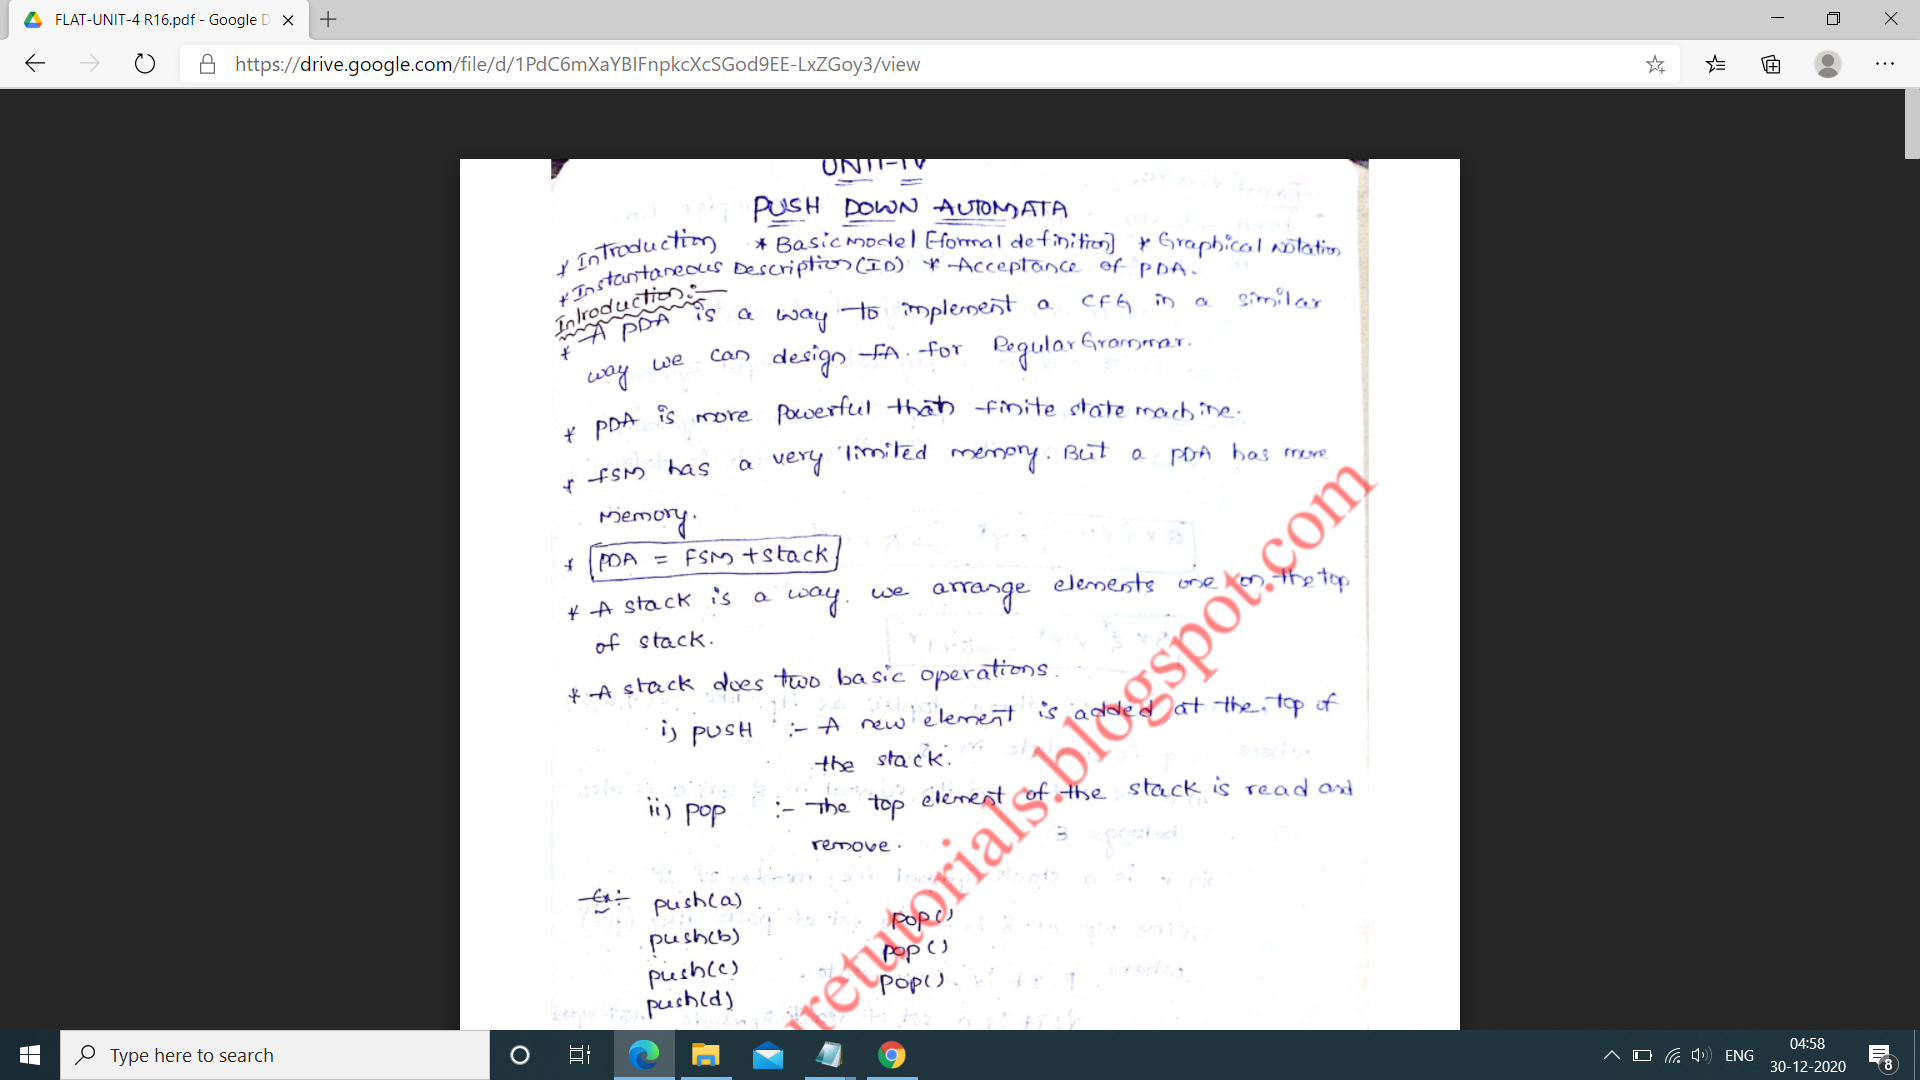 FLAT-UNIT-4 R16.pdf - Google D
https://drive.google.com/file/d/1PdC6mXaYBIFnpkcXcSGod9EE-LxZGoy3/view
UNIT-IV
PUSH DOWN AUTOMATA
* Introduction * Basic model [formal definition] * Graphical Notation
* Instantaneous Description(ID) * Acceptance of PDA.
Introduction:-
* A PDA is a way to implement a CFG in a similar
way we can design FA for Regular Grammar.
* PDA is more Powerful than finite state machine.
* FSM has a very limited memory. But a PDA has more
Memory.
* PDA = FSM + Stack
* A stack is a way we arrange elements one on the top
of stack.
* A stack does two basic operations.
i) PUSH :- A new element is added at the top of
the stack.
ii) POP :- The top element of the stack is read and
remove.
Ex:- push(a) pop()
push(b) pop()
push(c) pop()
push(d)
uretutorials.blogspot.com
Type here to search
ENG
04:58
30-12-2020
8